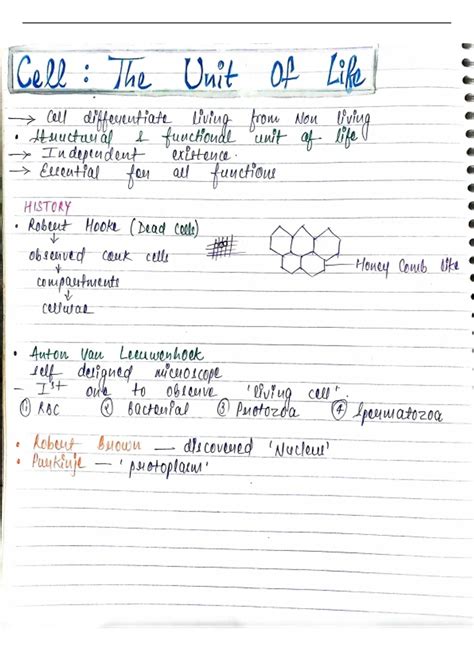 Cell : The Unit Of Life
→ Cell differentiate living from Non living
• Structural & functional unit of life
→ Independent existence.
→ Essential for all functions
HISTORY
• Robert Hooke (Dead cells)
observed cork cells
Honey Comb like
compartments
cellulae
• Anton Van Leeuwenhoek
self designed microscope
- Ist one to observe 'living cell'.
① RBC ② Bacterial ③ Protozoa ④ Spermatozoa
• Robert Brown — discovered 'Nucleus'
• Purkinje — 'protoplasm'